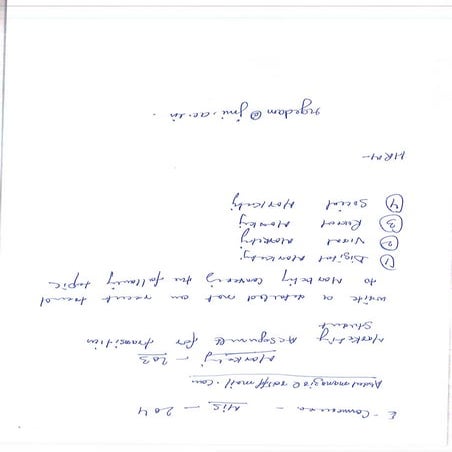 E-Commerce - MIS - 204
Marketing - 203
Marketing Assignment for transition
Student
write a detailed not on recent trend
to Marketing covering the following topic
① Digital Marketing.
② Viral Marketing
③ Rural Marketing
④ Social Marketing
HRM-
ngedam@jmi.ac.in.